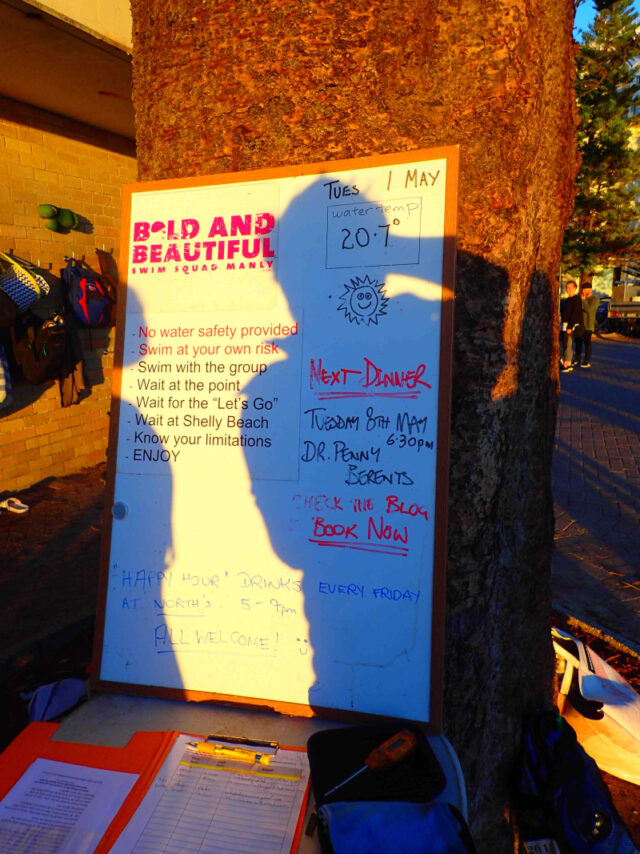 BOLD AND
BEAUTIFUL
SWIM SQUAD MANLY
TUES 1 MAY
water temp
20.7°
- No water safety provided
- Swim at your own risk
- Swim with the group
- Wait at the point
- Wait for the "Let's Go"
- Wait at Shelly Beach
- Know your limitations
- ENJOY
NEXT DINNER
TUESDAY 8TH MAY
6.30pm
DR. PENNY
BERENTS
CHECK THE BLOG
BOOK NOW
"HAPPY HOUR" DRINKS EVERY FRIDAY
AT NORTH'S. 5-7pm
ALL WELCOME!
261